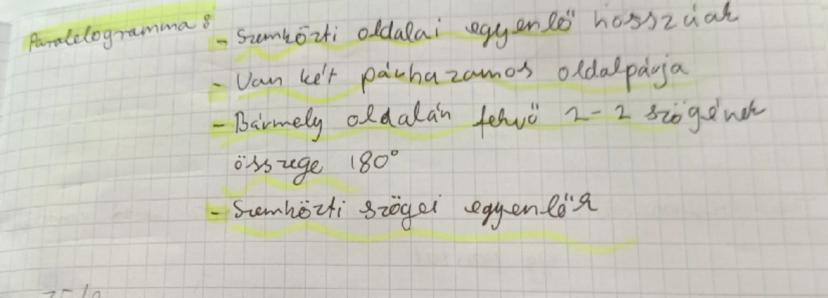 Paralelogramma: - Szemközti oldalai egyenlő hosszúak
- Van két párhuzamos oldalpárja
- Bármely oldalán fekvő 2-2 szögének
összege 180°
- Szemközti szögei egyenlők